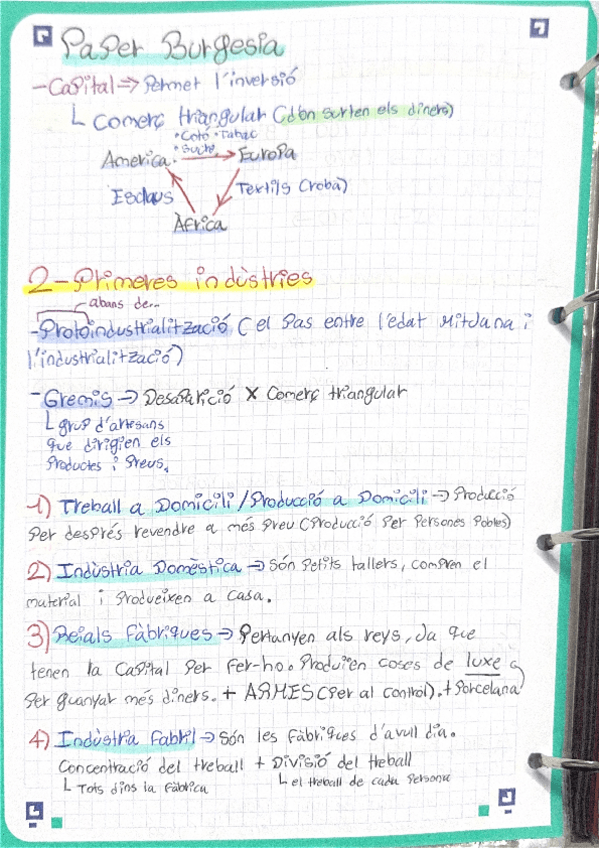 Paper Burgesia
- Capital => Permet l'inversió
Comerç triangular (d'on surten els diners)
• Cotó • Tabac
• Sucre
America Europa
Esclaus Textils (roba)
Àfrica
2- Primeres indústries
abans de...
- Protoindustrialització (el pas entre l'edat mitjana i
l'industrialització)
- Gremis -> Desaparició X Comerç triangular
grup d'artesans
que dirigien els
productes i preus.
1) Treball a Domicili / Producció a Domicili -> Producció
per després revendre a més preu (Producció per persones pobles)
2) Indústria Domèstica -> Són petits tallers, compren el
material i produeixen a casa.
3) Reials Fàbriques -> Pertanyen als reys, Ja que
tenen la Capital per fer-ho. Produïen coses de luxe
per guanyar més diners. + ARMES (per al control). + Porcelana
4) Indústria Fabril -> Són les fàbriques d'avull dia.
Concentració del treball + Divisió del treball
Tots dins la fàbrica el treball de cada persona